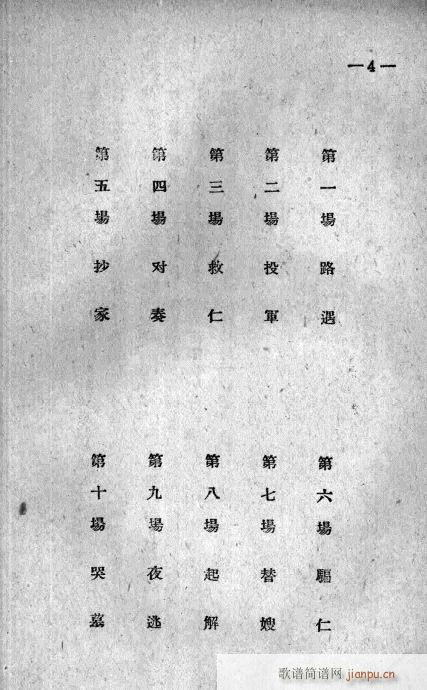 —4—
第一場 路遇
第二場 投軍
第三場 救仁
第四場 对奏
第五場 抄家
第六場 驅仁
第七場 替嫂
第八場 起解
第九場 夜逃
第十場 哭墓
歌谱简谱网 jianpu.cn